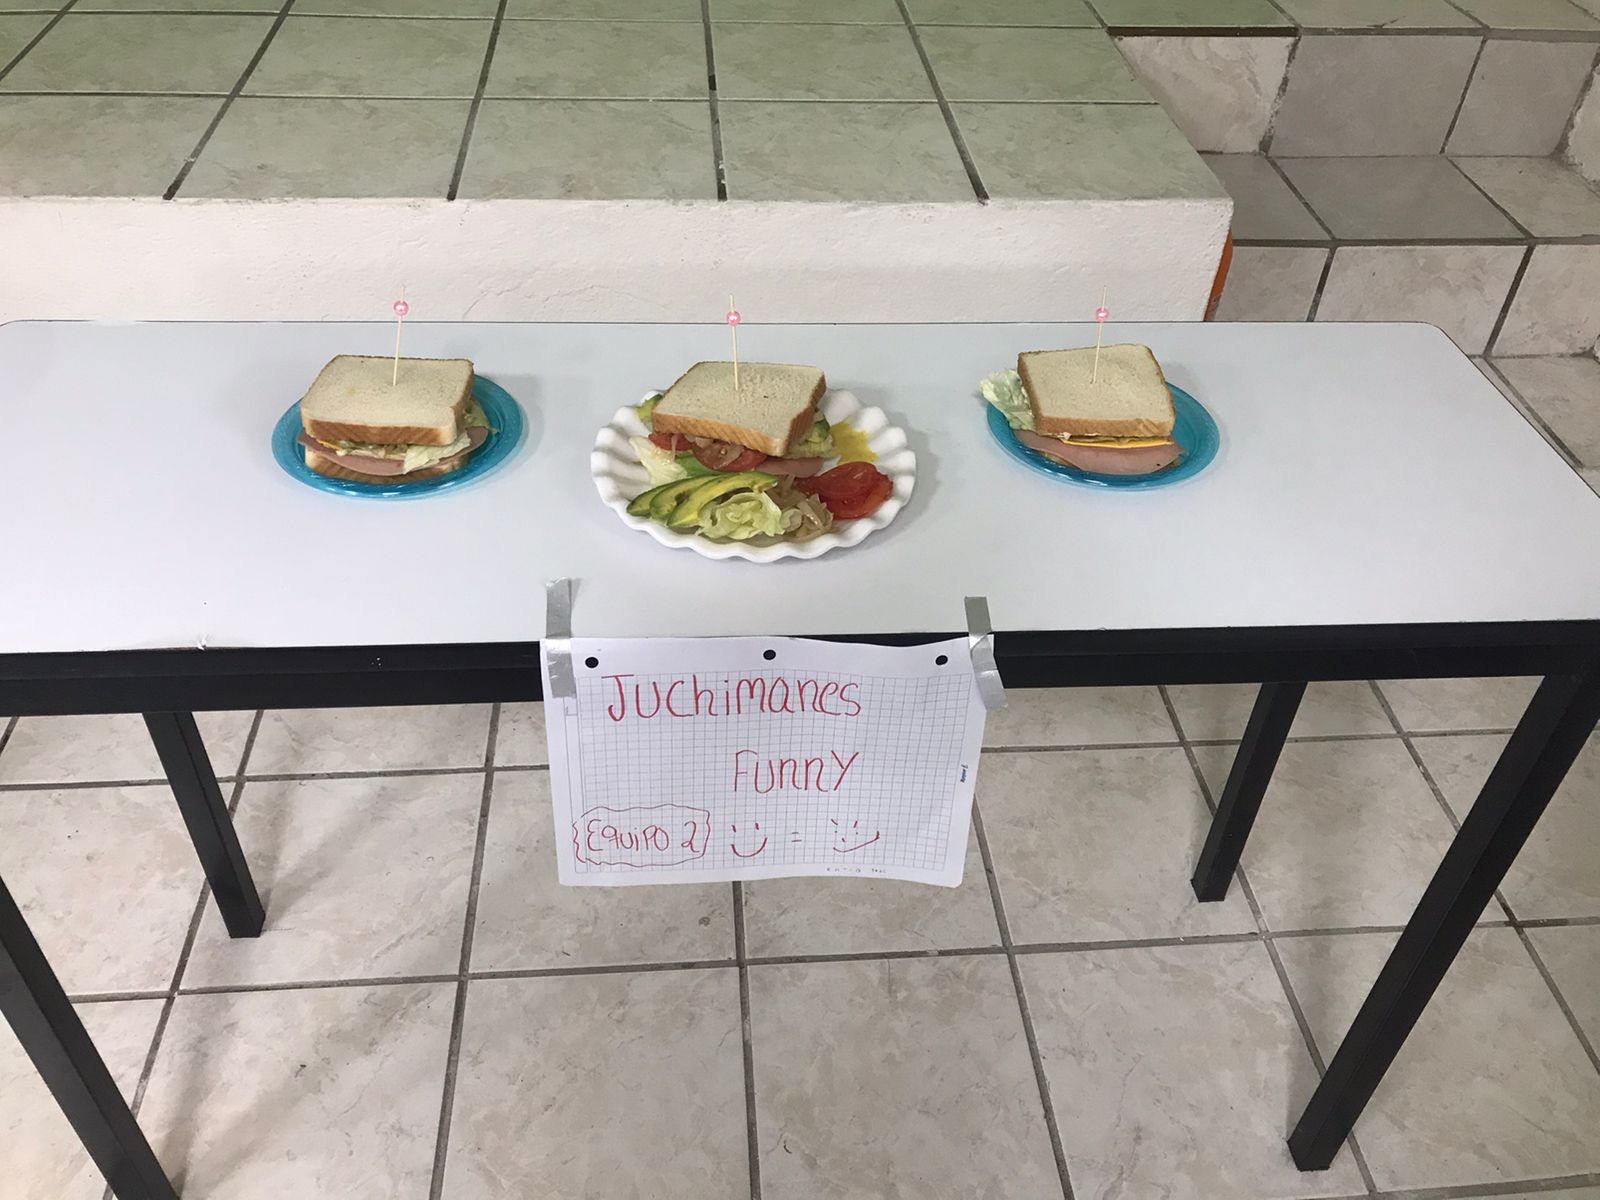 Juchimanes
Funny
Equipo 2 =